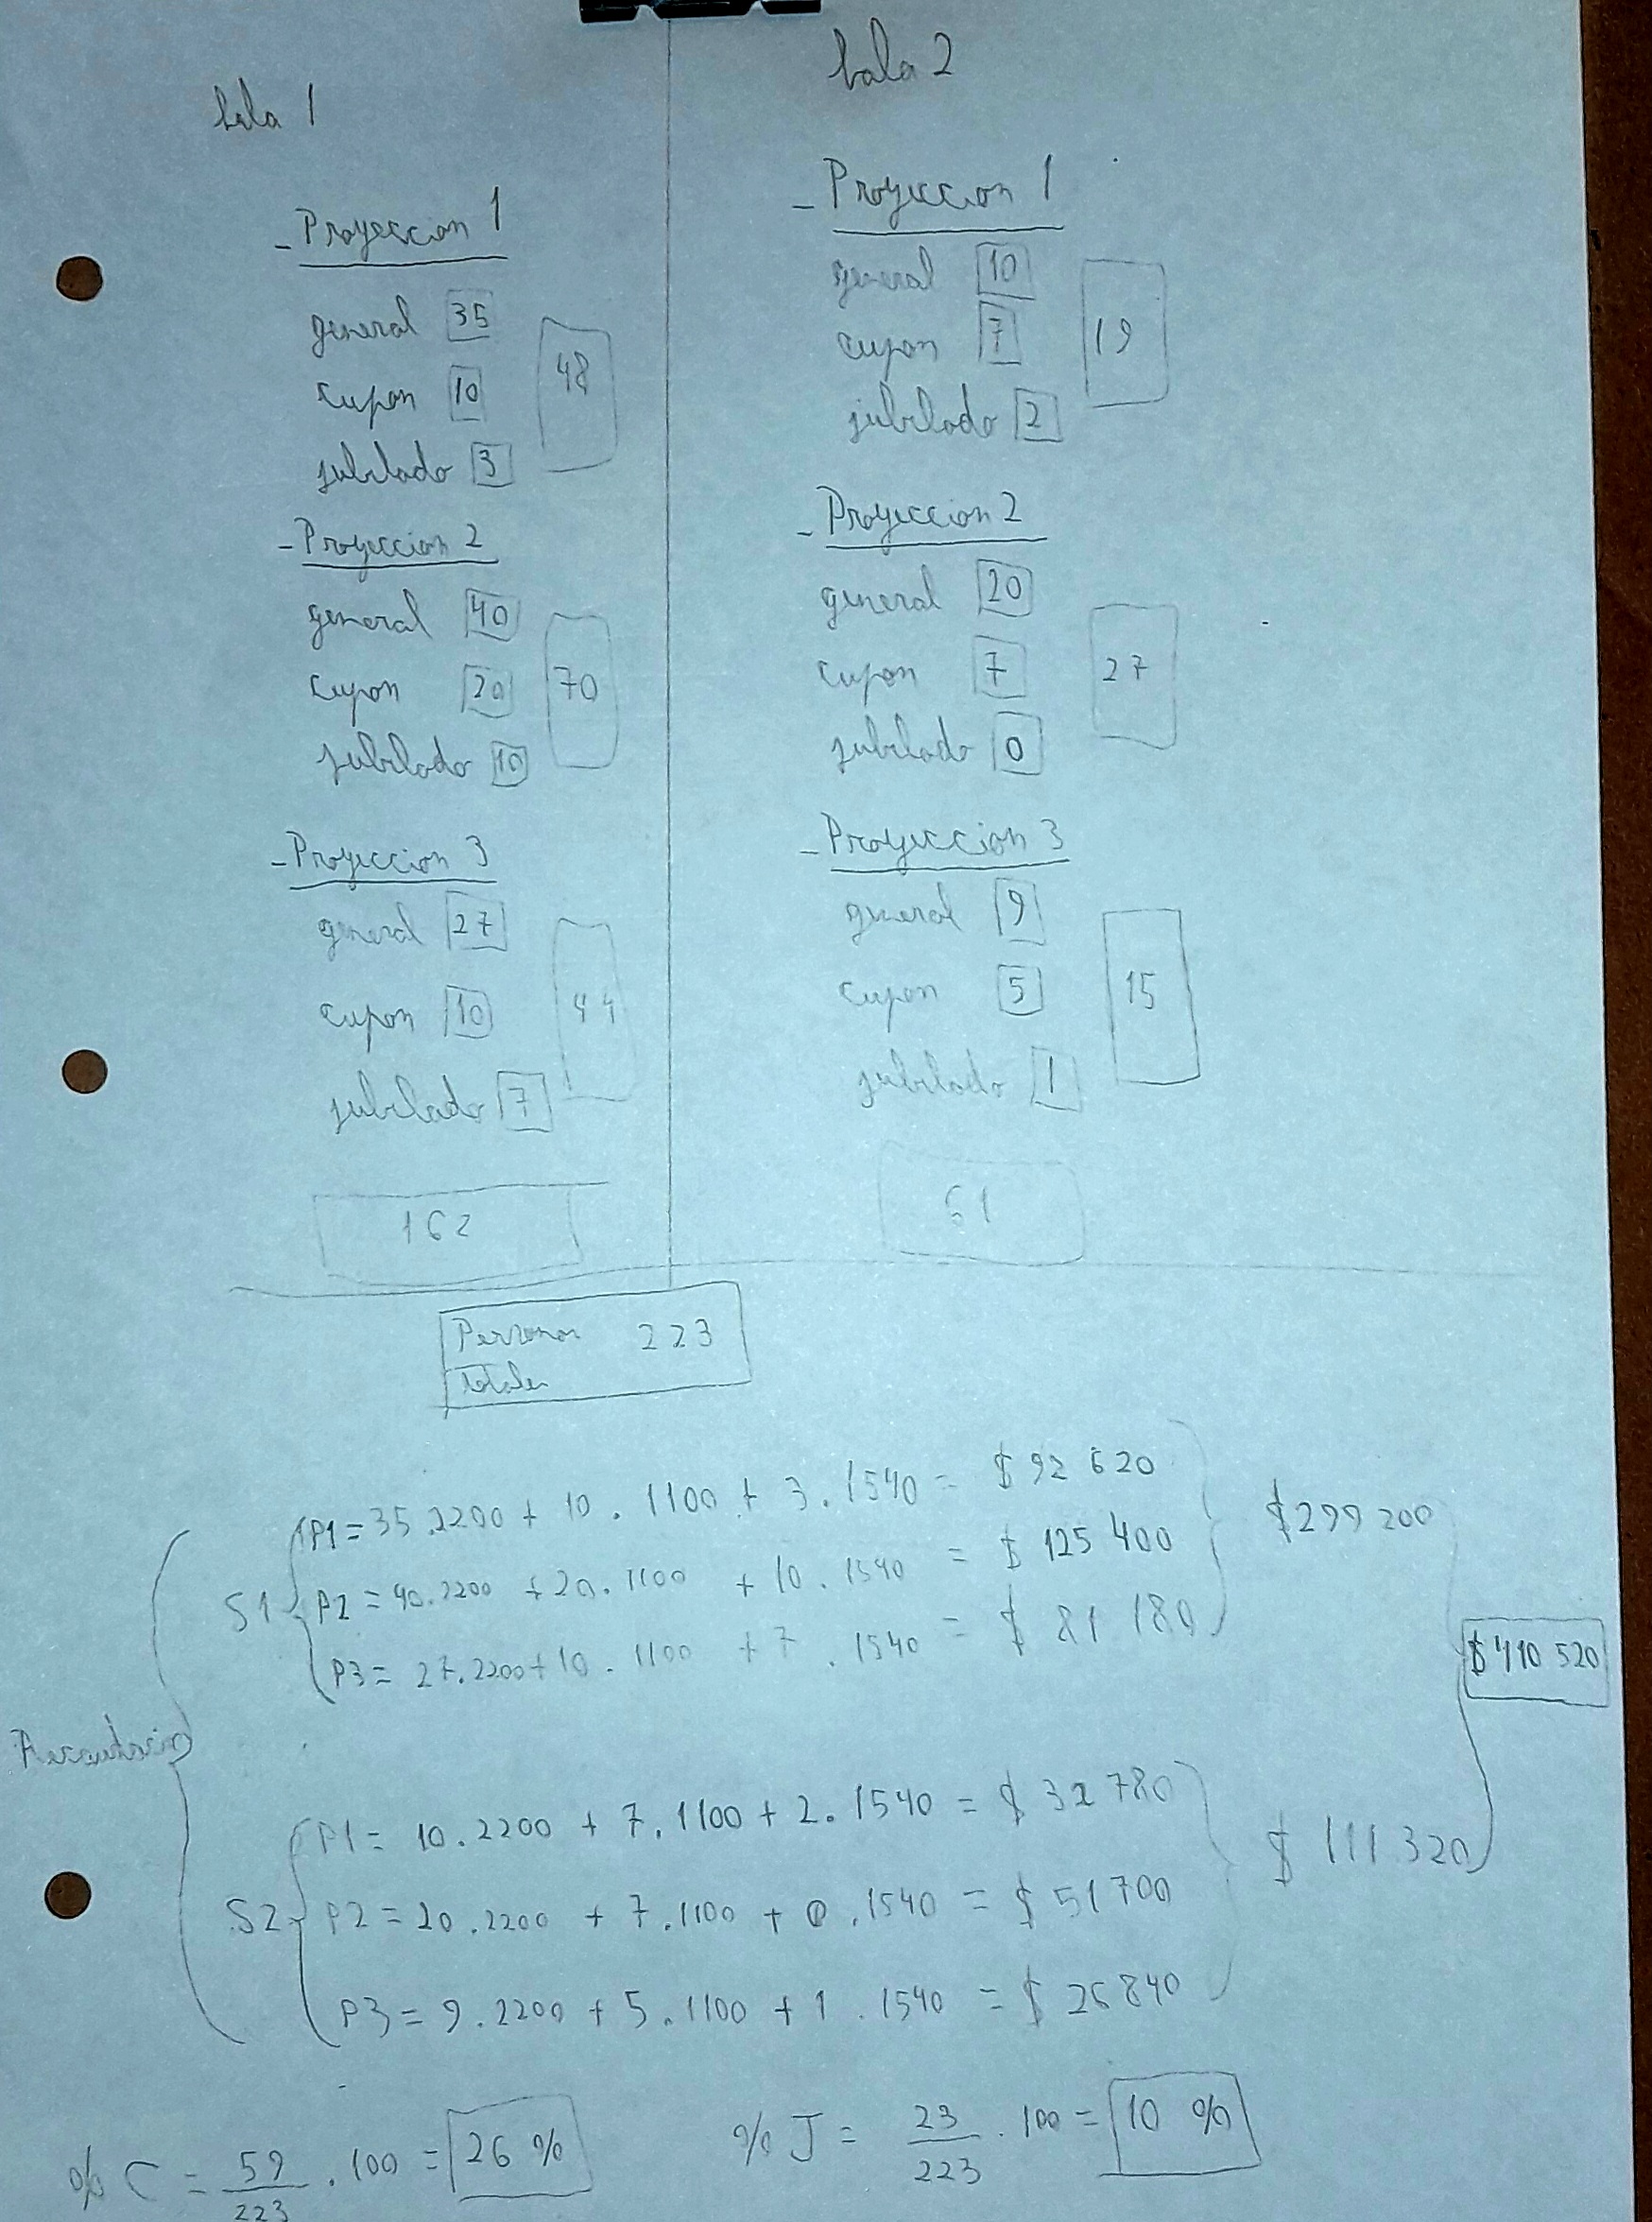 Sala 1
- Proyeccion 1
general 35
cupon 10
jubilado 3
48
- Proyeccion 2
general 40
cupon 20
jubilado 10
70
- Proyeccion 3
general 27
cupon 10
jubilado 7
44
162
Sala 2
- Proyeccion 1
general 10
cupon 7
jubilado 2
19
- Proyeccion 2
general 20
cupon 7
jubilado 0
27
- Proyeccion 3
general 9
cupon 5
jubilado 1
15
61
Personas 223
totales
Recaudacion
S1
P1 = 35.2200 + 10.1100 + 3.1540 = $ 92 620
P2 = 40.2200 + 20.1100 + 10.1540 = $ 125 400
P3 = 27.2200 + 10.1100 + 7.1540 = $ 81 180
$ 299 200
S2
P1 = 10.2200 + 7.1100 + 2.1540 = $ 32 780
P2 = 20.2200 + 7.1100 + 0.1540 = $ 51 700
P3 = 9.2200 + 5.1100 + 1.1540 = $ 26 840
$ 111 320
$ 410 520
% C = 59/223 . 100 = 26 %
% J = 23/223 . 100 = 10 %